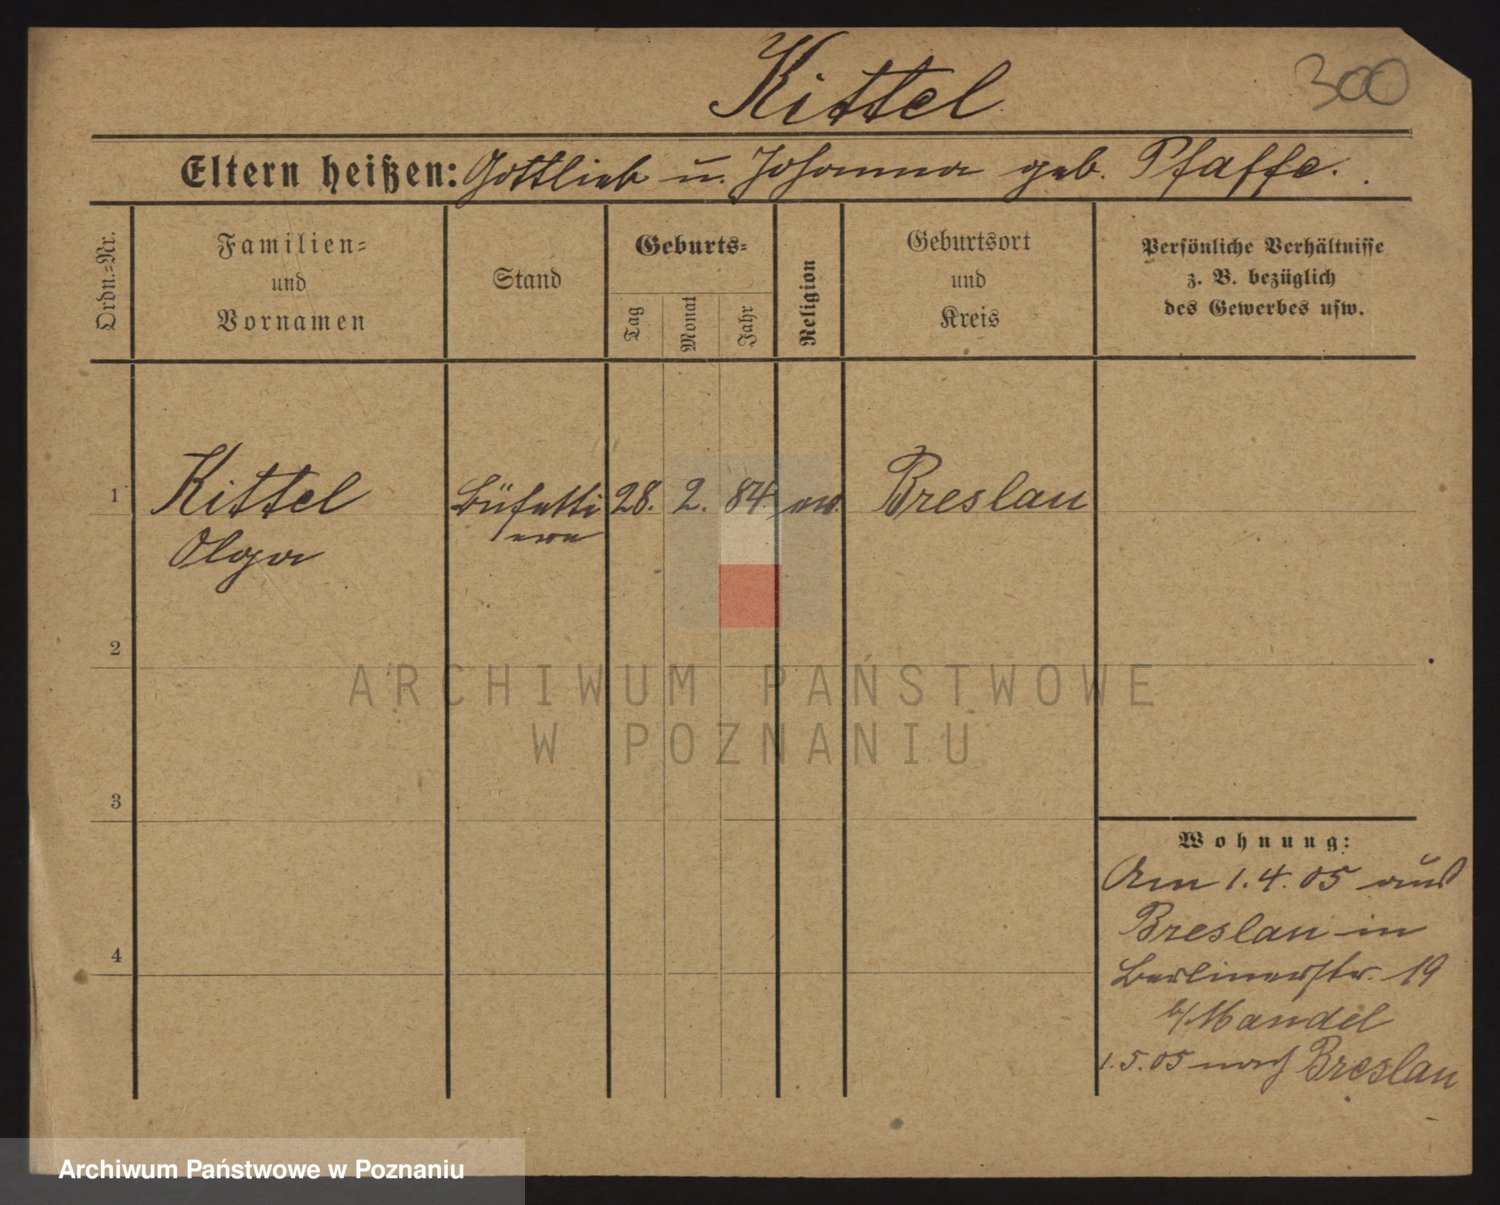 Kittel
300
Eltern heißen: Gottlieb u. Johanna geb. Pfaffe.
Ordn.=Nr.
Familien=
und
Vornamen
Stand
Geburts=
Tag
Monat
Jahr
Religion
Geburtsort
und
Kreis
Persönliche Verhältnisse
z. B. bezüglich
des Gewerbes usw.
1
Kittel
Olga
Büfetti
ere
28. 2. 84.
ev.
Breslau
2
3
4
Wohnung:
Am 1.4.05 aus
Breslau in
Berlinerstr. 19
b/Mandel
1.5.05 nach Breslau
ARCHIWUM PAŃSTWOWE
W POZNANIU
Archiwum Państwowe w Poznaniu